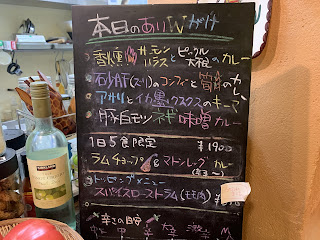 本日のありWがけ
香燻 サーモンハラスとピックル大根のカレー
砂肝(ズリ)のコンフィと筍のカレー
アサリとイカ墨クスクスのキーマ
豚白モツ ネギ味噌カレー
1日5食限定 ¥1900
ラムチョップ & マトンレッグカレー
トッピングメニュー
スパイスローストラム(モモ肉)
辛さの目安
KIRKLAND